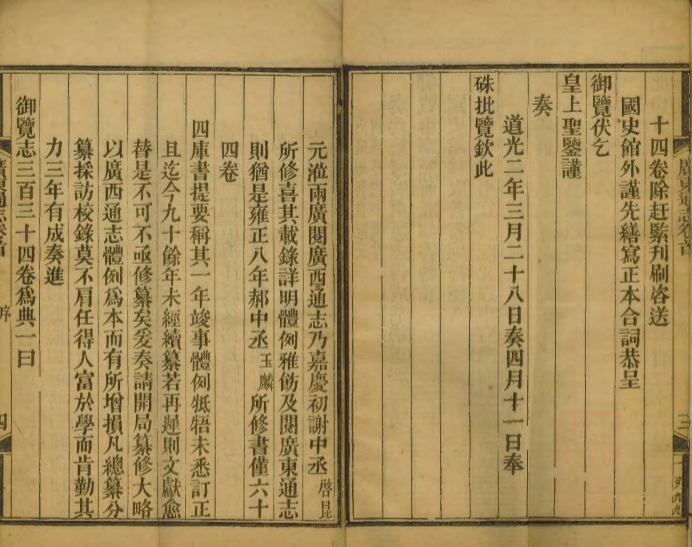 廣東通志卷首
三
十四卷除赶緊刊刷咨送
國史館外謹先繕寫正本合詞恭呈
御覽伏乞
皇上聖鑒謹
奏
道光二年三月二十八日奏四月十一日奉
硃批覽欽此
元涖兩廣閱廣西通志乃嘉慶初謝中丞啓昆
所修喜其載錄詳明體例雅飭及閱廣東通志
則猶是雍正八年郝中丞玉麟所修書僅六十
四卷
四庫書提要稱其一年竣事體例牴牾未悉訂正
且迄今九十餘年未經續纂若再遲則文獻愈
替是不可不亟修纂矣爰奏請開局纂修大略
以廣西通志體例爲本而有所增損凡總纂分
纂採訪校錄莫不肩任得人富於學而肯勤其
力三年有成奏進
御覽志三百三十四卷爲典一曰
廣東通志卷首
序
四